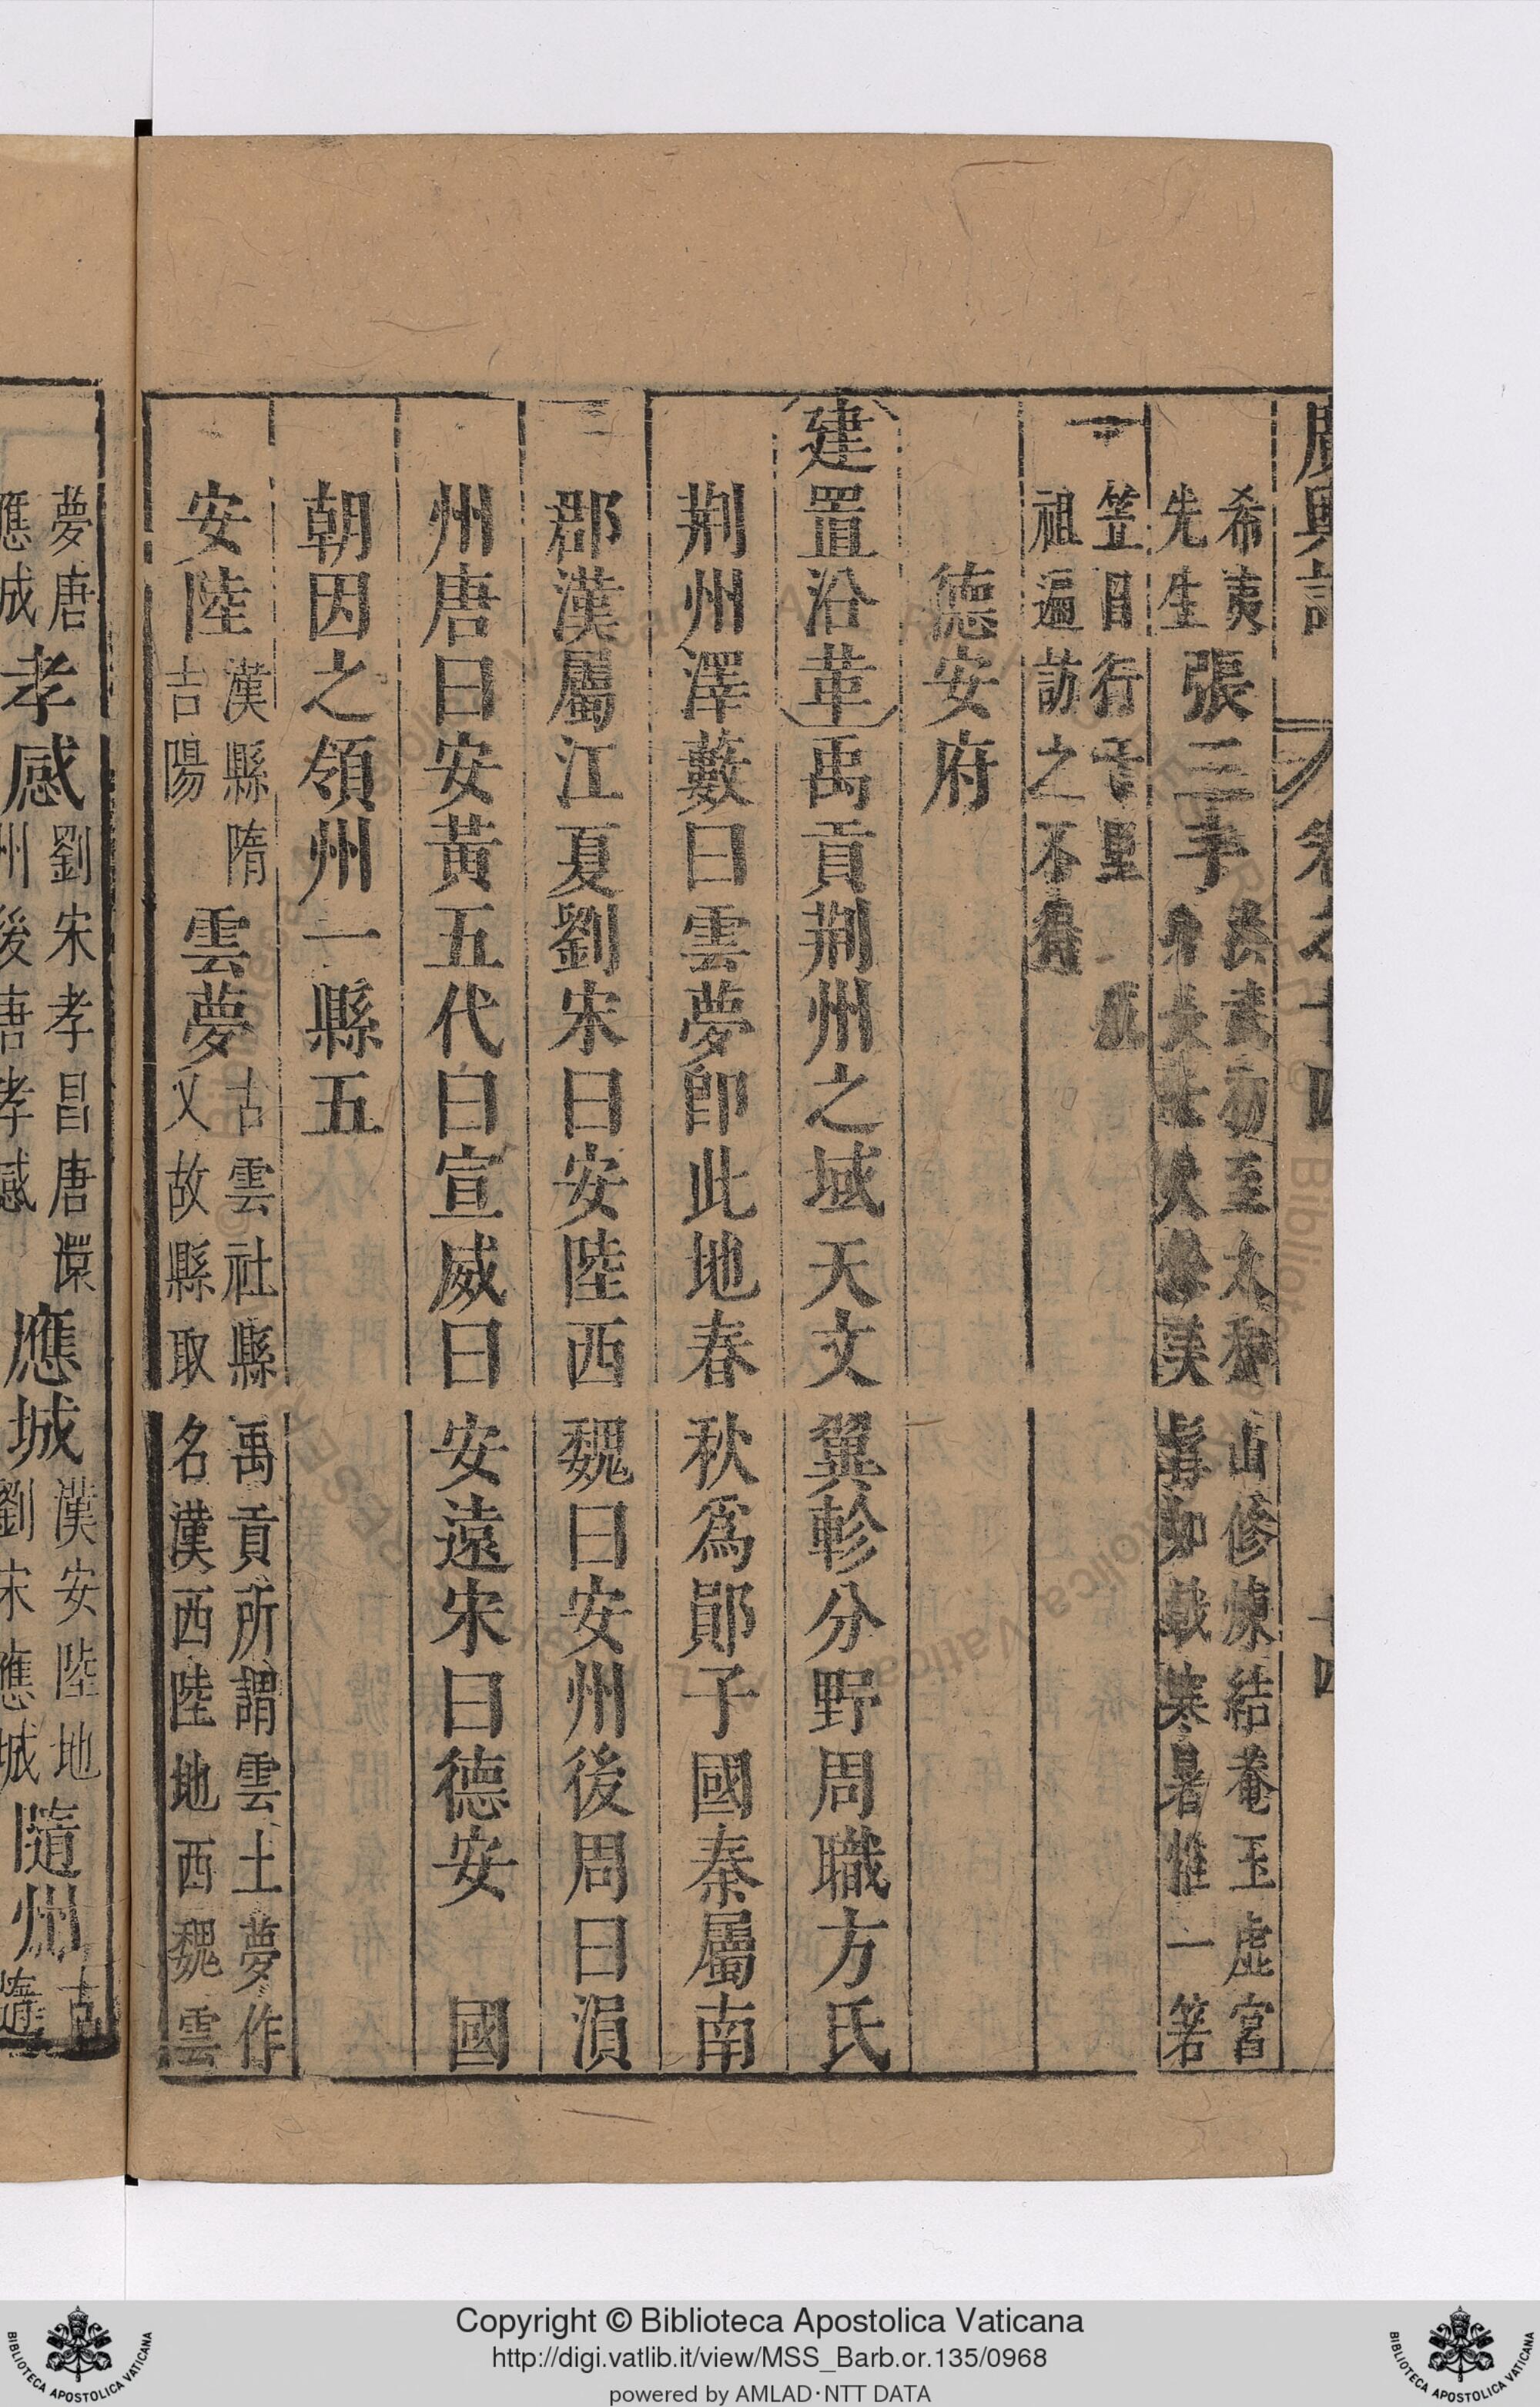 廣輿記 卷之十四 十四
希夷先生 張三丰 洪武初至太和山修煉結菴玉虛宮
身長七尺美髯如戟寒暑惟一箬
笠日行千里 祖遍訪之不得
德安府
建置沿革 禹貢荆州之域天文翼軫分野周職方氏
荆州澤藪曰雲夢即此地春秋爲鄖子國秦屬南
郡漢屬江夏劉宋曰安陸西魏曰安州後周曰溳
州唐曰安黃五代曰宣威曰安遠宋曰德安 國
朝因之領州一縣五
安陸 漢縣隋吉陽 雲夢 古雲社縣禹貢所謂雲土夢作
乂故縣取名漢西陸地西魏雲
夢唐應成 孝感 劉宋孝昌唐還州後唐孝感 應城 漢安陸地劉宋應城 隨州 古隨
Copyright © Biblioteca Apostolica Vaticana
http://digi.vatlib.it/view/MSS_Barb.or.135/0968
powered by AMLAD·NTT DATA
BIBLIOTECA APOSTOLICA VATICANA
BIBLIOTECA APOSTOLICA VATICANA